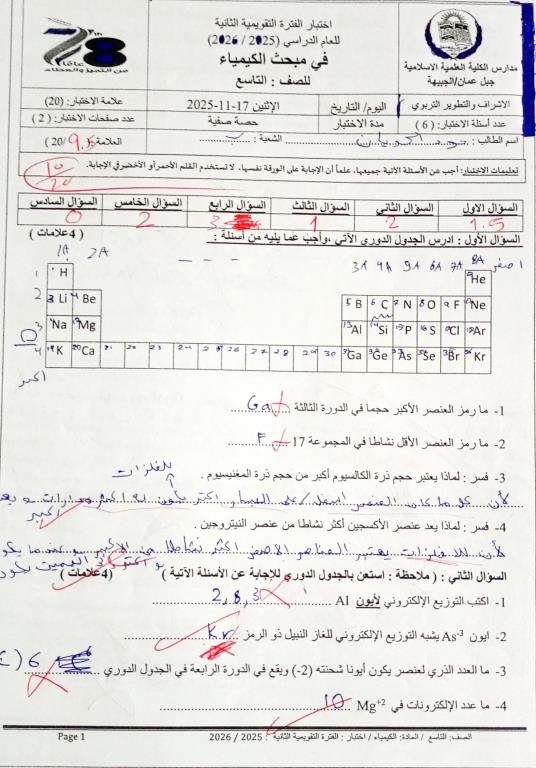 اختبار الفترة التقويمية الثانية
للعام الدراسي (2025 / 2026)
في مبحث الكيمياء
للصف : التاسع
مدارس الكلية العلمية الاسلامية
جبل عمان/الجبيهة
78
عامًا
من التميز والعطاء
الاشراف والتطوير التربوي
اليوم/ التاريخ
الإثنين 17-11-2025
علامة الاختبار: (20)
عدد أسئلة الاختبار: ( 6 )
مدة الاختبار
حصة صفية
عدد صفحات الاختبار: ( 2 )
اسم الطالب:
الشعبة :
العلامة 9.5 /20)
10/20
تعليمات الاختبار: أجب عن الأسئلة الآتية جميعها، علماً أن الإجابة على الورقة نفسها، لا تستخدم القلم الأحمر أو الأخضر في الإجابة.
السؤال الاول السؤال الثاني السؤال الثالث السؤال الرابع السؤال الخامس السؤال السادس
1.5 2 1 3 2 0
السؤال الأول : ادرس الجدول الدوري الآتي ،وأجب عما يليه من أسئلة : ( 4علامات )
1A 2A --- 3A 4A 6A 7A 8A اصغر
1 H He
2 3 Li 4 Be 5 B 6 C 7 N 8 O 9 F Ne
3 Na Mg 13 Al Si 15 P 16 S Cl Ar
4 K 20 Ca 21 22 23 24 25 26 27 28 29 30 Ga Ge As Se Br 36 Kr
اكبر
1- ما رمز العنصر الأكبر حجما في الدورة الثالثة Ga
2- ما رمز العنصر الأقل نشاطا في المجموعة 17 F
للفلزات
3- فسر : لماذا يعتبر حجم ذرة الكالسيوم أكبر من حجم ذرة المغنيسيوم .
لأن كل ما كان العنصر اسفل على اليسار اكثر يكون له اكثر مدارات و
اكبر
4- فسر : لماذا يعد عنصر الأكسجين أكثر نشاطا من عنصر النيتروجين .
لأن اللافلزات يعتبر العناصر الاصغر اكثر نشاطا من الاكبر و عندما يكون
السؤال الثاني : ( ملاحظة : استعن بالجدول الدوري للإجابة عن الأسئلة الآتية ) ( 4علامات )
1- اكتب التوزيع الإلكتروني لأيون Al 2,8,3
2- ايون As-3 يشبه التوزيع الإلكتروني للغاز النبيل ذو الرمز Kr
3- ما العدد الذري لعنصر يكون أيونا شحنته (2-) ويقع في الدورة الرابعة في الجدول الدوري 6
4- ما عدد الإلكترونات في Mg+2 10
الصف: التاسع / المادة: الكيمياء / اختبار : الفترة التقويمية الثانية : 2025 / 2026
Page 1